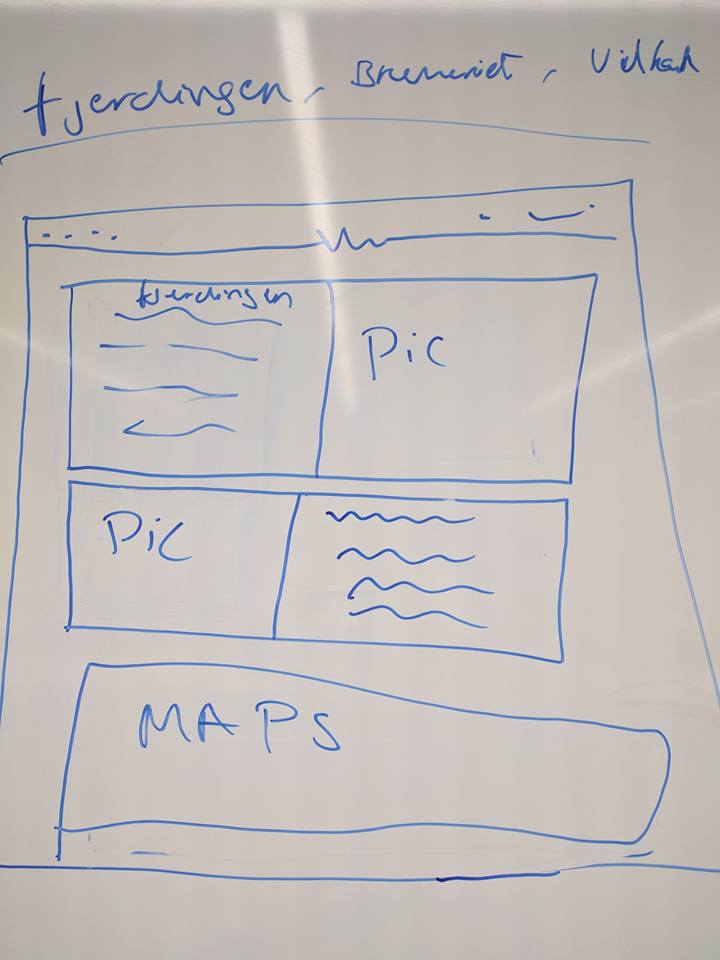 fjerdingen, Brenneriet, Vulkan
fjerdingen
Pic
Pic
MAPS